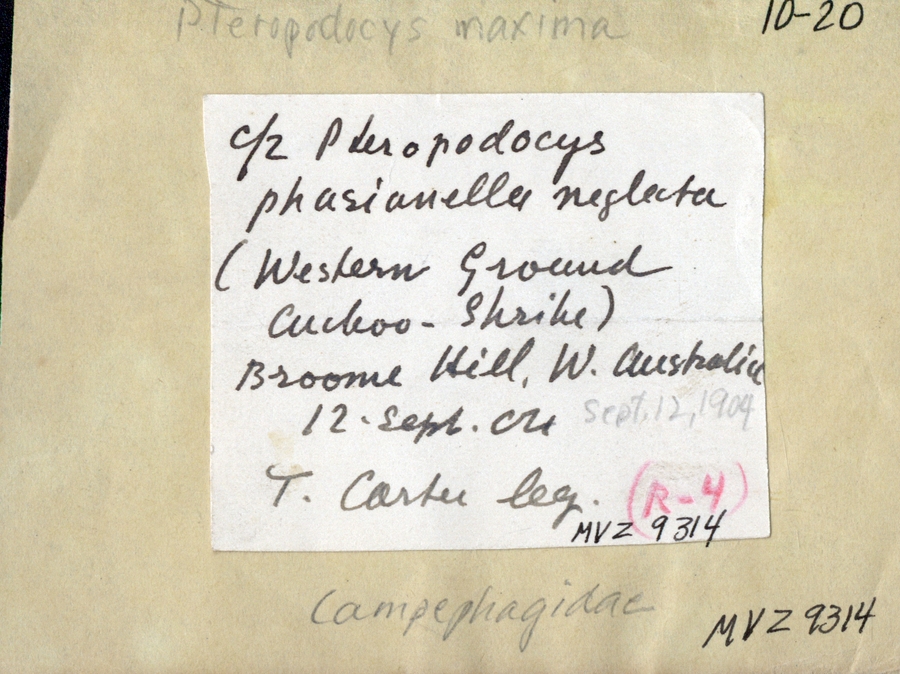 Pteropodocys maxima
10-20
c/2 Pteropodocys
phasianella neglecta
(Western Ground
Cuckoo-Shrike)
Broome Hill, W. Australia
12.Sept. 04 Sept.12,1904
T. Carter leg. (R-4)
MVZ 9314
Campephagidae
MVZ 9314